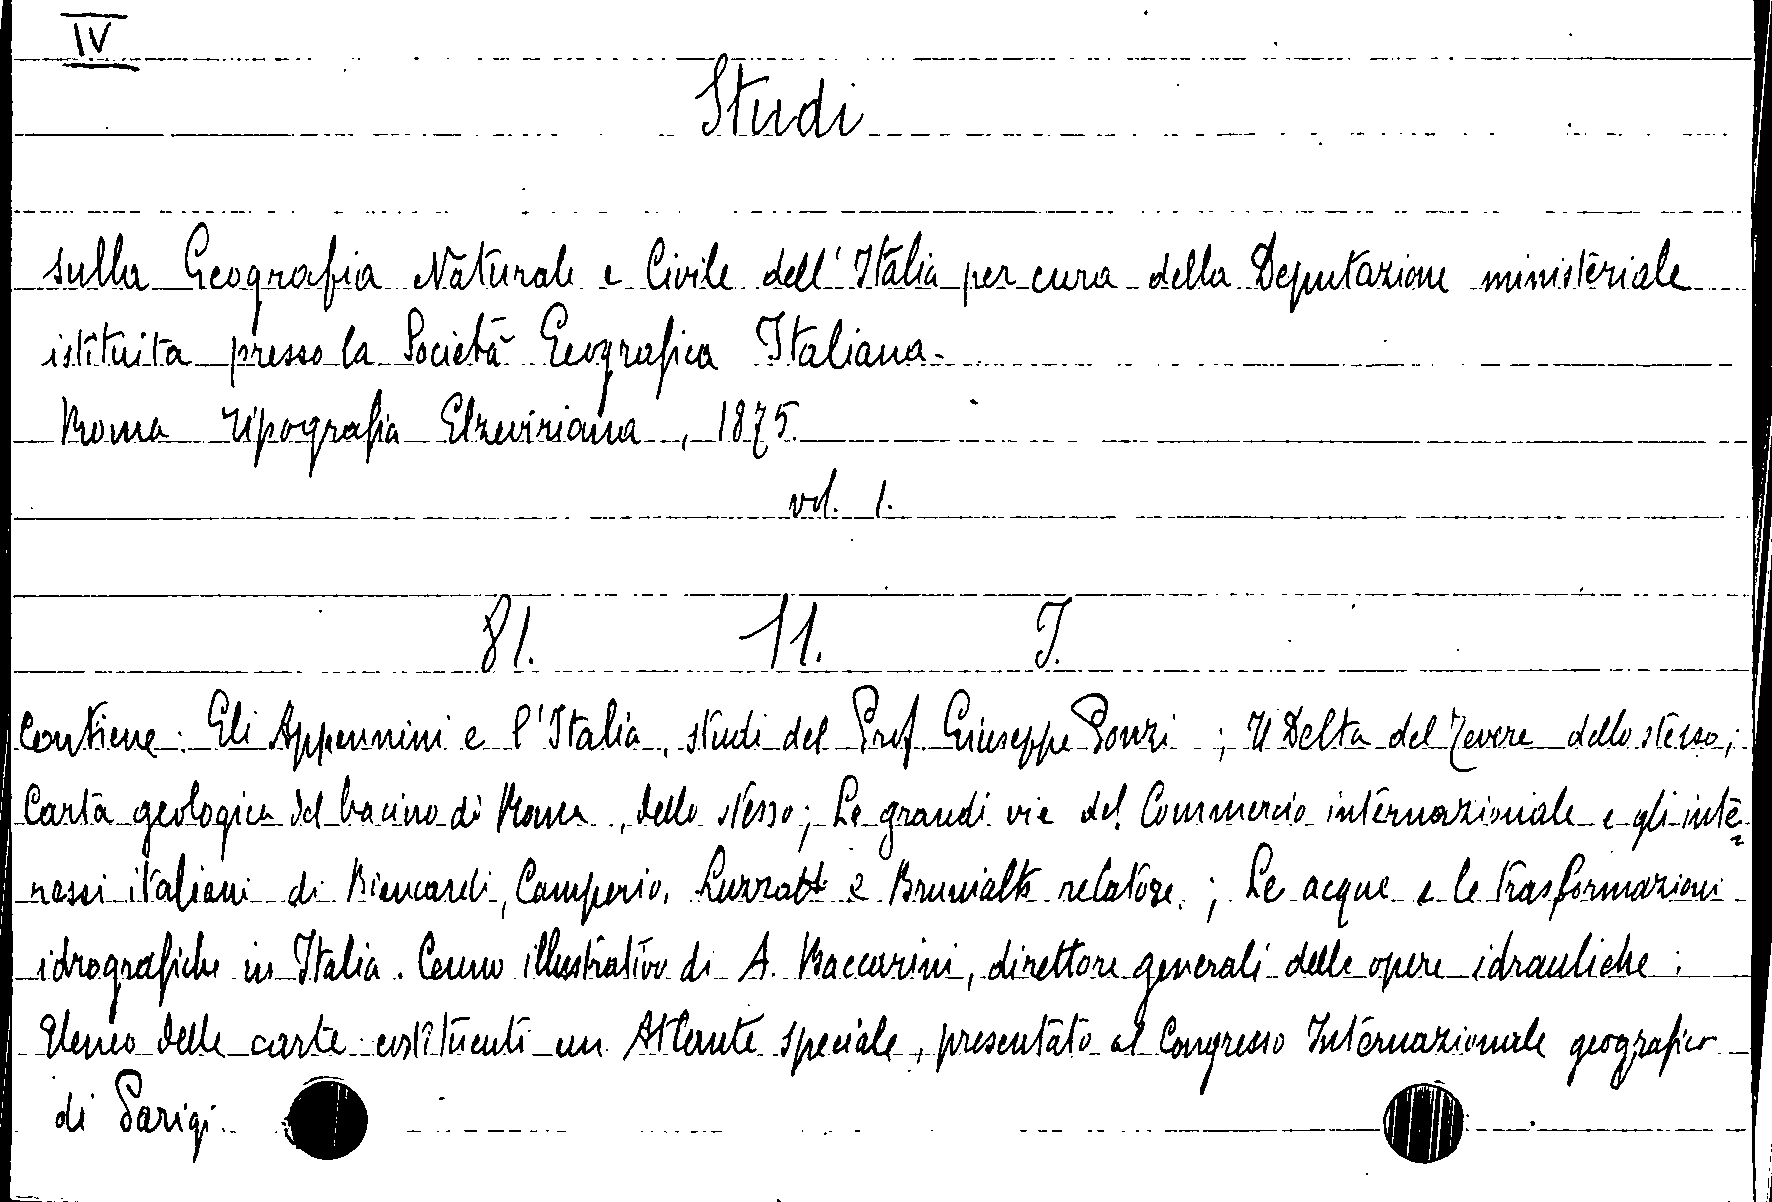 IV
Studi
sulla Geografia Naturale e Civile dell'Italia per cura della Deputazione ministeriale
istituita presso la Società Geografica Italiana.
Roma Tipografia Elzeviriana, 1875.
vol. 1.
81. 11. I.
Contiene: Gli Appennini e l'Italia, studi del Prof. Giuseppe Ponzi; Il Delta del Tevere dello stesso;
Carta geologica del bacino di Roma, dello stesso; Le grandi vie del Commercio internazionale e gli inte=
ressi italiani di Biancardi, Camperio, Luzzatti e Brunialti relatore.; Le acque e le trasformazioni
idrografiche in Italia. Cenno illustrativo di A. Baccarini, direttore generali delle opere idrauliche:
Elenco delle carte costituenti un Atlante speciale, presentato al Congresso Internazionale geografico
di Parigi.